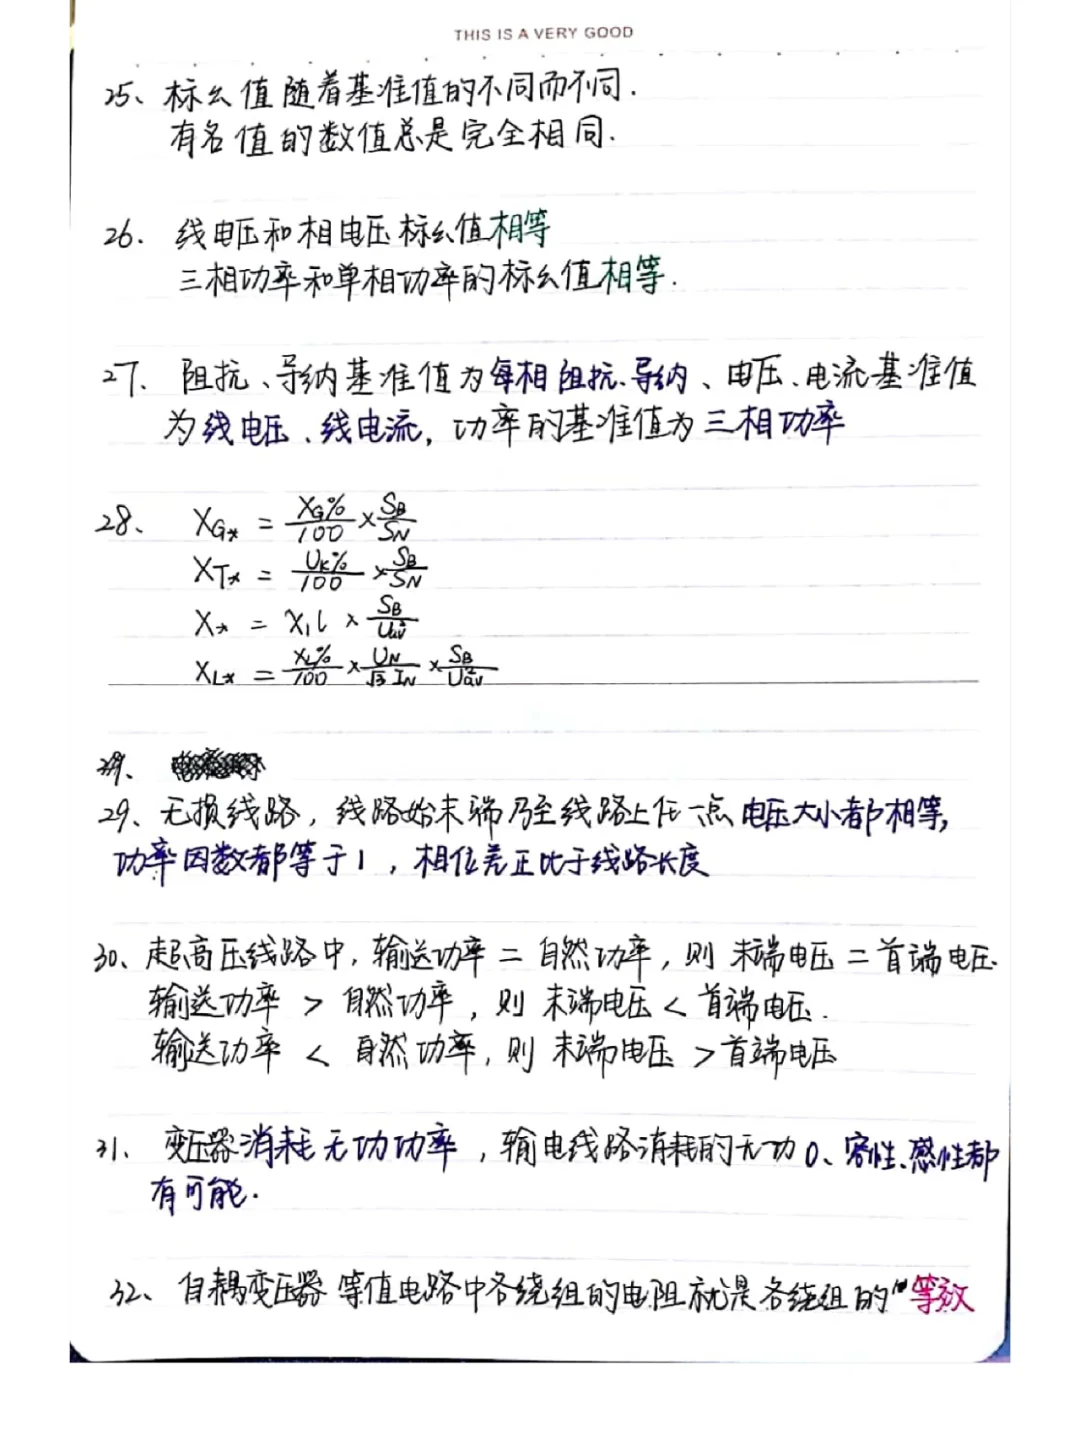 THIS IS A VERY GOOD
25、标幺值随着基准值的不同而不同.
有名值的数值总是完全相同.
26. 线电压和相电压标幺值相等
三相功率和单相功率的标幺值相等.
27、阻抗、导纳基准值为每相阻抗、导纳、电压、电流基准值
为线电压、线电流，功率的基准值为三相功率
28、 X_G* = X_G%/100 × S_B/S_N
X_T* = U_K%/100 × S_B/S_N
X_* = X₁l × S_B/U_av²
X_L* = X_L%/100 × U_N/√3 I_N × S_B/U_av²
29、无损线路，线路始末端乃至线路上任一点电压大小都相等,
功率因数都等于1，相位差正比于线路长度
30、超高压线路中，输送功率 = 自然功率，则 末端电压 = 首端电压.
输送功率 > 自然功率，则 末端电压 < 首端电压.
输送功率 < 自然功率，则 末端电压 > 首端电压
31、变压器消耗无功功率，输电线路消耗的无功0、容性、感性都
有可能.
32、自耦变压器等值电路中各绕组的电阻就是各绕组的"等效